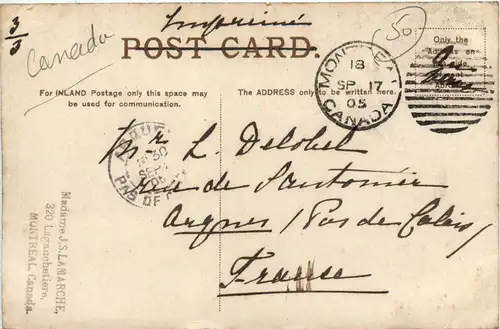 3/3
Canada
Imprimé
50
POST CARD.
For INLAND Postage only this space may
be used for communication.
The ADDRESS only to be written here.
Only the
MONTREAL
18
SP 17
05
CANADA
30
SEPT
PAS DE
L. Delobel
Rue de
Arques (Pas de Calais)
France
Madame J. S. LAMARCHE,
320 Lagauchetière,
MONTREAL, Canada.